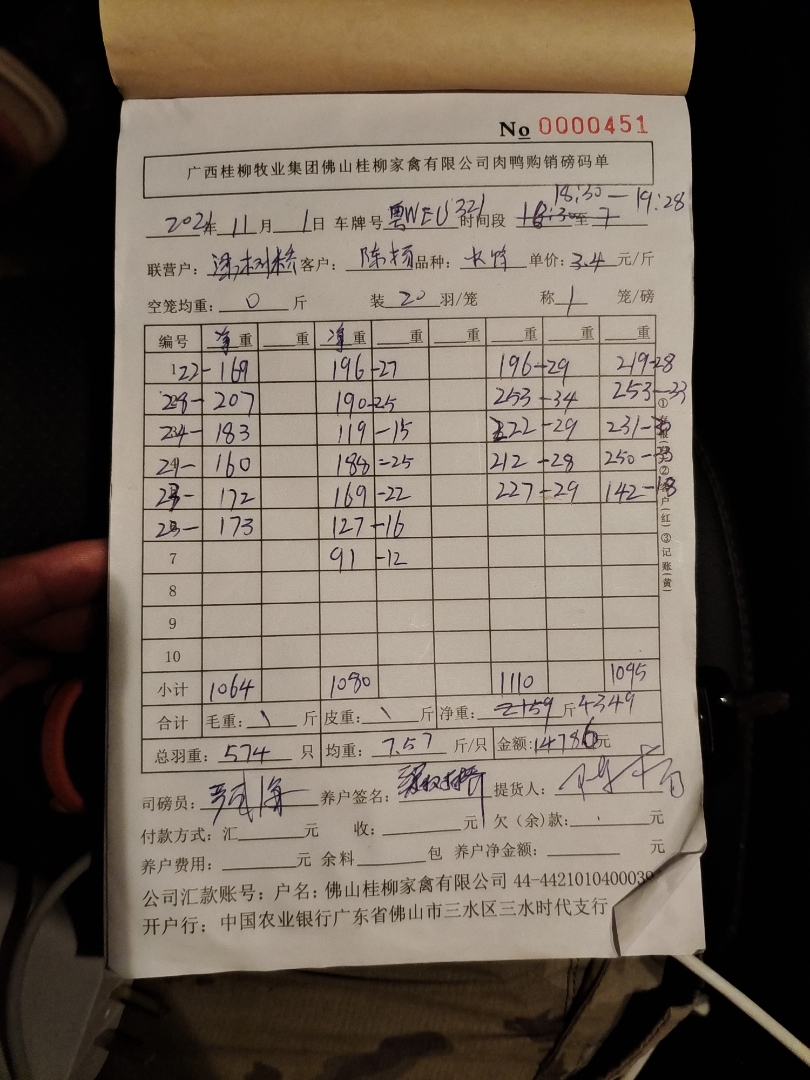 No 0000451
广西桂柳牧业集团佛山桂柳家禽有限公司肉鸭购销磅码单
18:30—19:28
2021年 11月 1日 车牌号 粤WEU321 时间段 18:30至7
联营户: 客户: 陈杨 品种: 单价: 3.4 元/斤
空笼均重: 0 斤 装 20 羽/笼 称 1 笼/磅
编号 净重 重 净重 重 重 重 重 重
1 22- 169 196 -27 196 -29 219 -28
28- 207 190 -25 253 -34 253 -33
24- 183 119 -15 222 -29 231-
21- 160 188 -25 212 -28 250-
23- 172 169 -22 227 -29 142 -18
173 127 -16
7 91 -12
8
9
10
小计 1064 1080 1110 1095
合计 毛重: \ 斤 皮重: \ 斤 净重: 2159 斤 4349
总羽重: 574 只 均重: 7.57 斤/只 金额: 14786元
司磅员: 养户签名: 提货人:
付款方式: 汇 元 收: 元 欠(余)款: 元
养户费用: 元 余料 包 养户净金额: 元
公司汇款账号: 户名: 佛山桂柳家禽有限公司 44-4421010400039
开户行: 中国农业银行广东省佛山市三水区三水时代支行
①存根(白)②客户(红)③记账(黄)